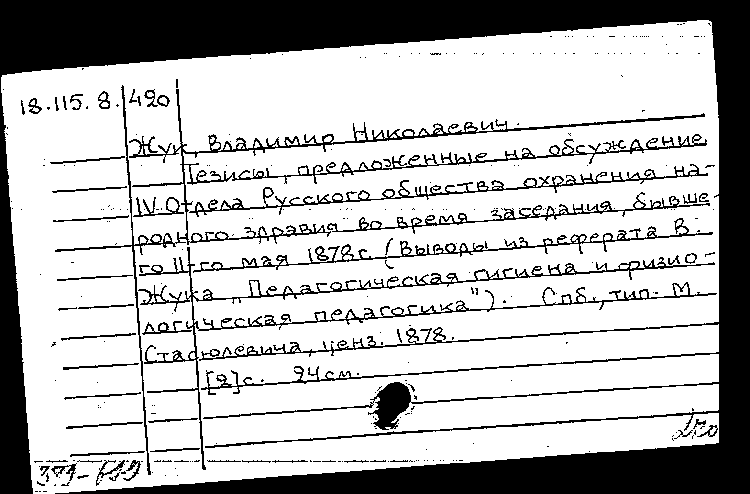 18.115.8.420
Жук, Владимир Николаевич.
Тезисы, предложенные на обсуждение
IV Отдела Русского общества охранения на-
родного здравия во время заседания, бывше-
го 11-го мая 1878 г. (Выводы из реферата В.
Жука „Педагогическая гигиена и физио-
логическая педагогика"). Спб., тип. М.
Стасюлевича, ценз. 1878.
[2] с. 24 см.